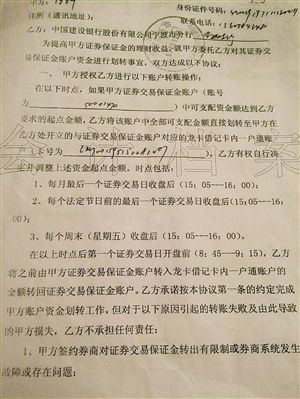 甲方:
身份证件号码:
住所（通讯地址）:
联系电话:
乙方:中国建设银行股份有限公司宁波市分行
为提高甲方证券保证金的理财收益,就甲方委托乙方对其证券
交易保证金账户资金进行划转事宜，双方达成以下协议:
一、甲方授权乙方进行以下账户转账操作:
在以下时点，如果甲方证券保证金账户（账号
为）中可支配资金额达到乙方
要求的起点金额,乙方将该账户中全部可支配金额直接划转至甲方在
乙方处开立的与证券交易保证金账户对应的龙卡借记卡内一户通账
户（卡号为），乙方有权自行决
定并调整上述资金起点金额。时点包括:
1、每月最后一个证券交易日收盘后（15：05---16；00）；
2、每个法定节日前的最后一个证券交易日收盘后(15:05---16:
00);
3、每个周末（星期五）收盘后（15：05---16：00）；
在以上时点后第一个证券交易日开盘前（8；45---9；15），乙方
将之前由甲方证券交易保证金账户转入龙卡借记卡内一户通账户的
金额转回证券交易保证金账户。乙方承诺按本协议第一条的约定完成
甲方账户资金划转工作，但对于以下原因引起的转账失败及由此导致
的甲方损失，乙方不承担任何责任:
1、甲方签约券商对证券交易保证金转出有限制或券商系统发生
故障或存在问题;